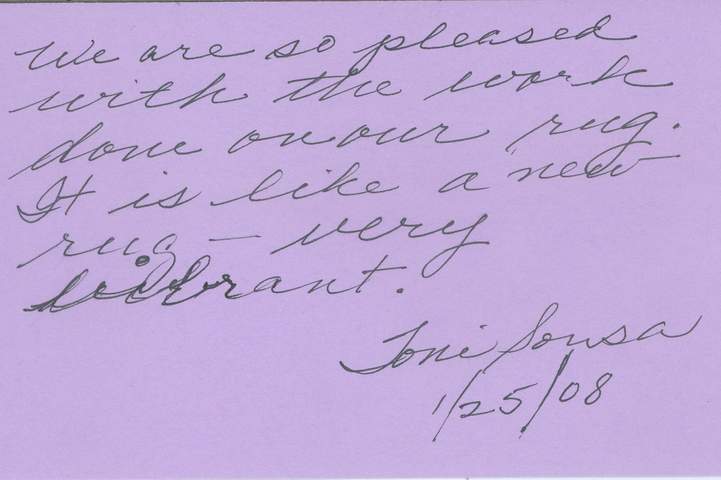 We are so pleased
with the work
done on our rug.
It is like a new
rug — very
vibrant.
Toni Sousa
1/25/08